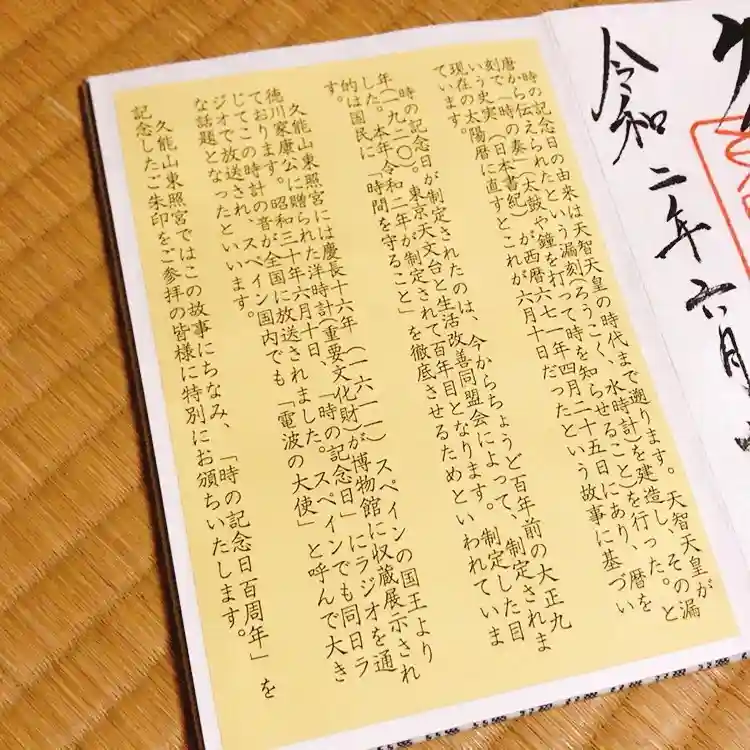 令和二年六月
時の記念日の由来は天智天皇の時代まで遡ります。天智天皇が
唐から伝えられたという漏刻(ろうこく、水時計)を建造し、その漏
刻で「時の奏」(太鼓や鐘を打って時を知らせること)を行った。と
いう史実(日本書紀)が西暦六七一年四月二十五日にあり、暦を
現在の太陽暦に直すとこれが六月十日だったという故事に基づい
ています。
時の記念日が制定されたのは、今からちょうど百年前の大正九
年(一九二〇)。東京天文台と生活改善同盟会によって、制定されま
した。本年、令和二年が制定されて百年目となります。制定した目
的は国民に「時間を守ること」を徹底させるためといわれていま
す。
久能山東照宮には慶長十六年(一六一一)スペインの国王より
徳川家康公に贈られた洋時計(重要文化財)が博物館に収蔵展示され
ております。昭和三十年六月十日、「時の記念日」にラジオを通
じてこの時計の音が全国に放送されました。スペインでも同日ラ
ジオで放送され、スペイン国内でも「電波の大使」と呼んで大き
な話題となったといいます。
久能山東照宮ではこの故事にちなみ、「時の記念日百周年」を
記念したご朱印をご参拝の皆様に特別にお頒ちいたします。